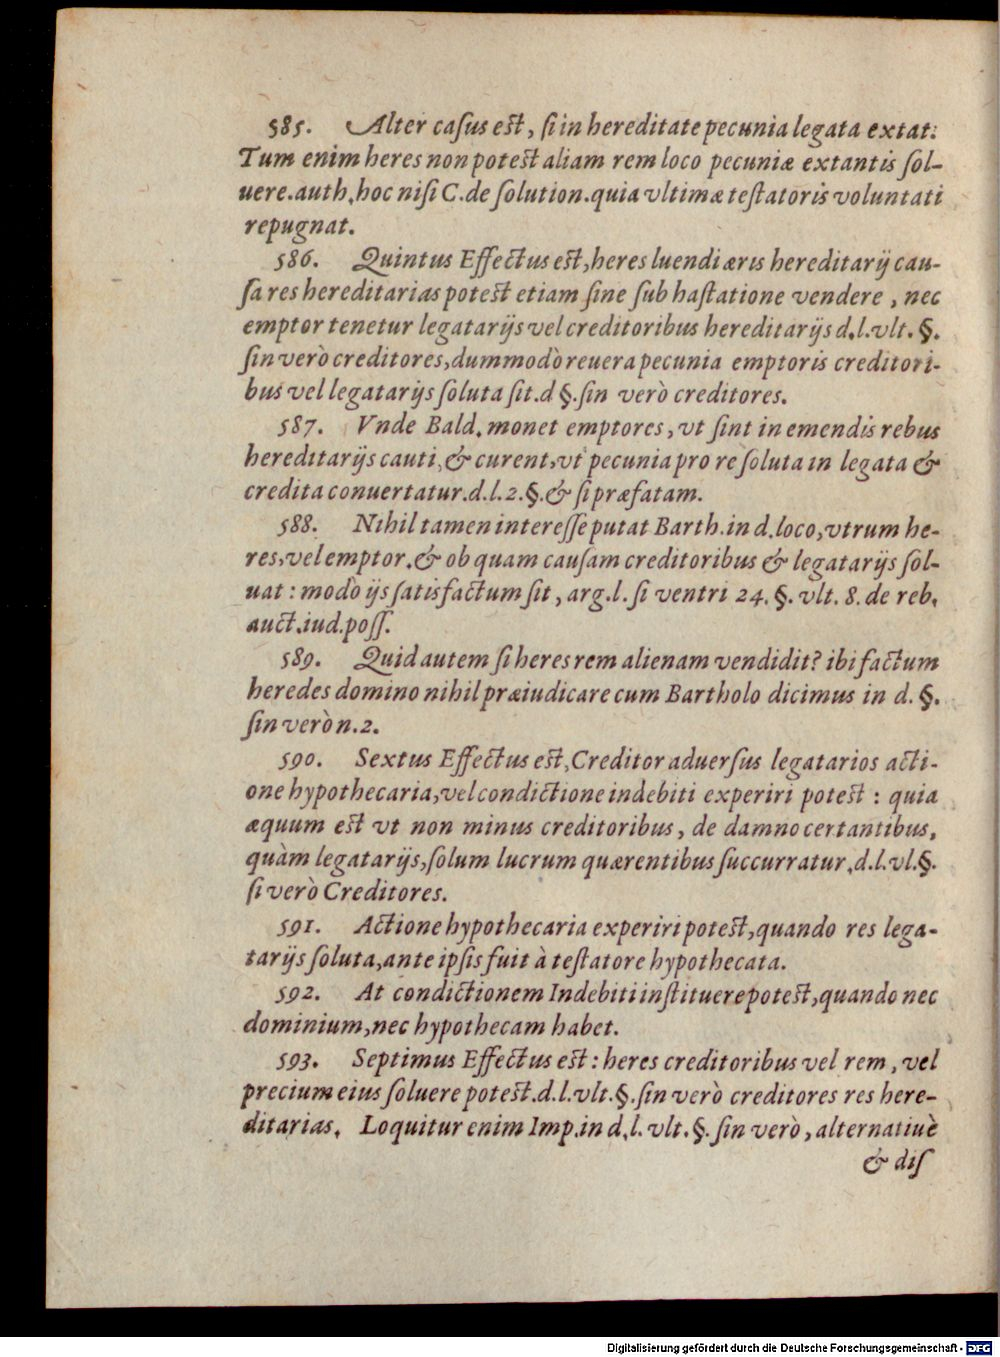 585. Alter caſus eſt, ſi in hereditate pecunia legata extat:
Tum enim heres non poteſt aliam rem loco pecuniæ extantis ſol-
uere. auth. hoc niſi C. de ſolution. quia vltimæ teſtatoris voluntati
repugnat.
586. Quintus Effectus eſt, heres luendi æris hereditarij cau-
ſa res hereditarias poteſt etiam ſine ſubhaſtatione vendere, nec
emptor tenetur legatarijs vel creditoribus hereditarijs d. l. vlt. §.
ſin verò creditores, dummodò reuera pecunia emptoris creditori-
bus vel legatarijs ſoluta ſit. d §. ſin verò creditores.
587. Vnde Bald. monet emptores, vt ſint in emendis rebus
hereditarijs cauti, & curent, vt pecunia pro re ſoluta in legata &
credita conuertatur. d. l. 2. §. & ſi præfatam.
588. Nihil tamen intereſſe putat Barth. in d. loco, vtrum he-
res, vel emptor. & ob quam cauſam creditoribus & legatarijs ſol-
uat : modò ijs ſatisfactum ſit, arg. l. ſi ventri 24. §. vlt. 8. de reb.
auct. iud. poſſ.
589. Quid autem ſi heres rem alienam vendidit? ibi factum
heredes domino nihil præiudicare cum Bartholo dicimus in d. §.
ſin verò n. 2.
590. Sextus Effectus eſt, Creditor aduerſus legatarios acti-
one hypothecaria, vel condictione indebiti experiri poteſt : quia
æquum eſt vt non minus creditoribus, de damno certantibus,
quàm legatarijs, ſolum lucrum quærentibus ſuccurratur, d. l. vl. §.
ſi verò Creditores.
591. Actione hypothecaria experiri poteſt, quando res lega-
tarijs ſoluta, ante ipſis fuit à teſtatore hypothecata.
592. At condictionem Indebiti inſtituere poteſt, quando nec
dominium, nec hypothecam habet.
593. Septimus Effectus eſt : heres creditoribus vel rem, vel
precium eius ſoluere poteſt. d. l. vlt. §. ſin verò creditores res here-
ditarias. Loquitur enim Imp. in d. l. vlt. §. ſin verò, alternatiuè
& diſ
Digitalisierung gefördert durch die Deutsche Forschungsgemeinschaft - DFG